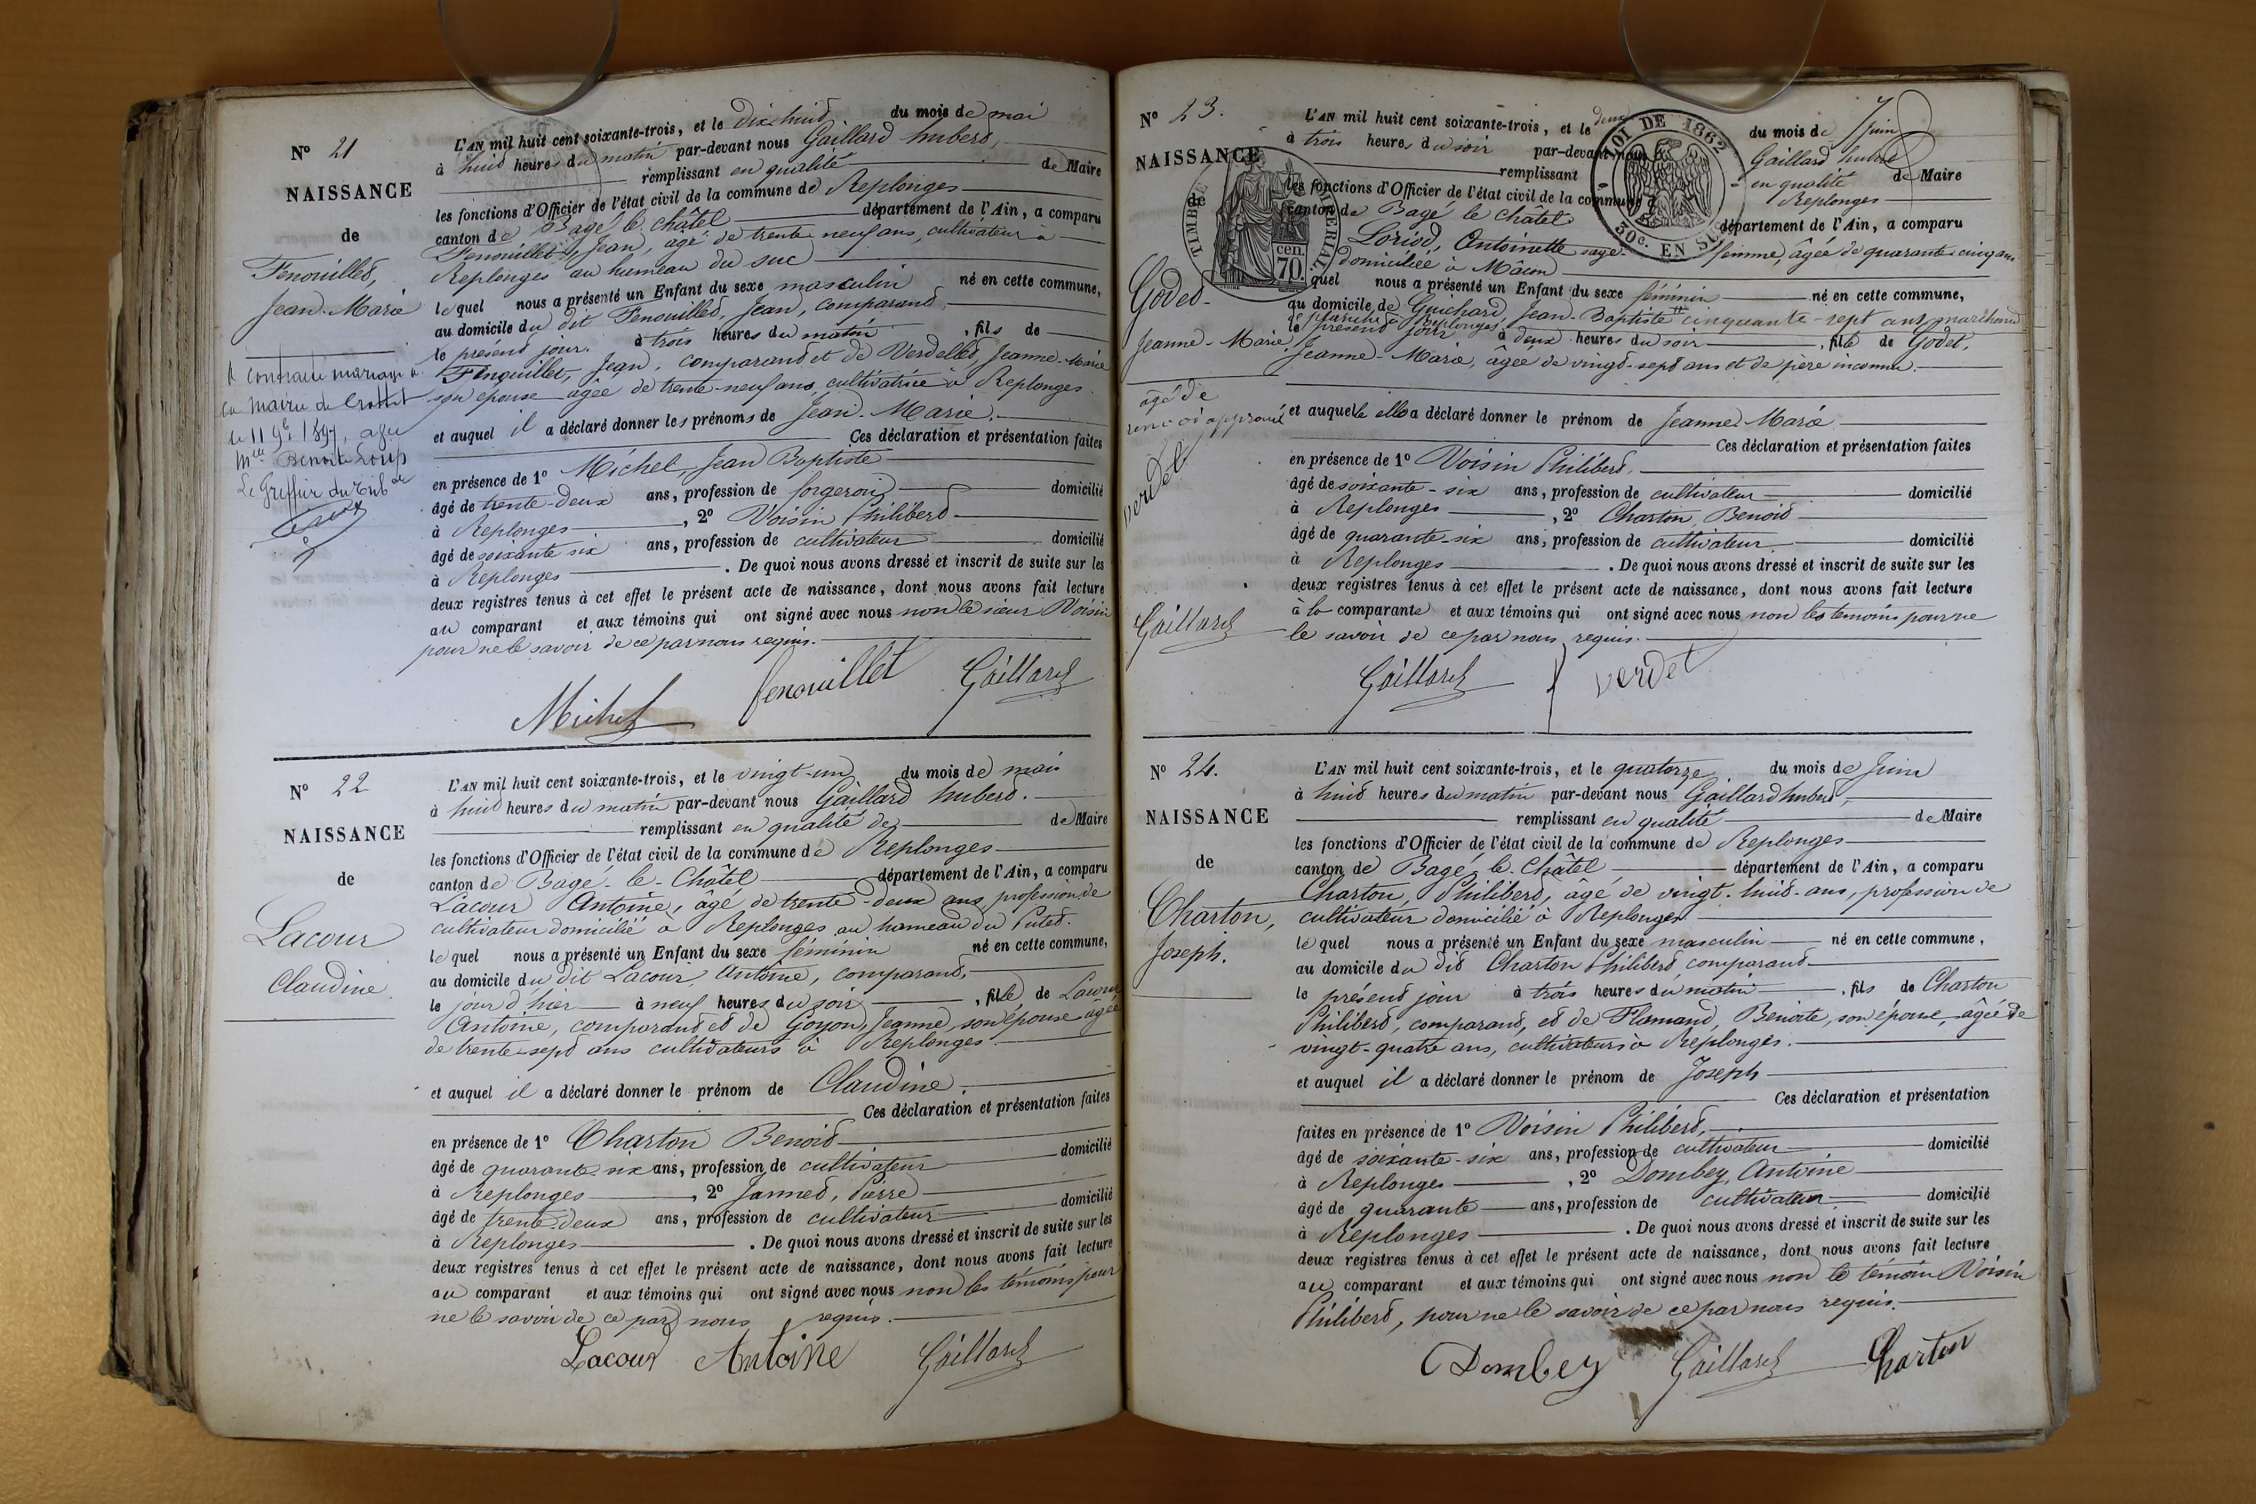 N° 21
NAISSANCE
de
Fenouillet,
Jean-Marie
A contracté mariage à
la mairie de Crottet
le 11 9bre 1897, avec
Mlle Benoite Loup
Le Greffier du Tribal
L'AN mil huit cent soixante-trois, et le dix huit du mois de mai
à huit heures du matin par-devant nous Gaillard hubert,
remplissant en qualité de Maire
les fonctions d'Officier de l'état civil de la commune de Replonges
canton de Bagé le châtel département de l'Ain, a comparu
Fenouillet, Jean, agé de trente neuf ans, cultivateur à
Replonges au hameau du suc
lequel nous a présenté un Enfant du sexe masculin né en cette commune,
au domicile du dit Fenouillet, Jean, comparant,
le présent jour. à trois heures du matin, fils de
Fenouillet, Jean, comparant et de Verdellet, Jeanne-Marie
son épouse âgée de trente-neuf ans cultivatrice à Replonges
et auquel il a déclaré donner les prénoms de Jean-Marie.
Ces déclaration et présentation faites
en présence de 1° Michel, Jean Baptiste
âgé de trente-deux ans, profession de forgeron domicilié
à Replonges, 2° Voisin Philibert
âgé de soixante six ans, profession de cultivateur domicilié
à Replonges. De quoi nous avons dressé et inscrit de suite sur les
deux registres tenus à cet effet le présent acte de naissance, dont nous avons fait lecture
au comparant et aux témoins qui ont signé avec nous non le sieur Voisin
pour ne le savoir de ce par nous requis.
Michel fenouillet Gaillard
N° 22
NAISSANCE
de
Lacour
Claudine
L'AN mil huit cent soixante-trois, et le vingt-un du mois de mai
à huit heures du matin par-devant nous Gaillard hubert.
remplissant en qualité de de Maire
les fonctions d'Officier de l'état civil de la commune de Replonges
canton de Bagé-le-Châtel département de l'Ain, a comparu
Lacour Antoine, âgé de trente-deux ans, profession de
cultivateur domicilié à Replonges au hameau du Putet.
lequel nous a présenté un Enfant du sexe féminin né en cette commune,
au domicile du dit Lacour, Antoine, comparant,
le jour d'hier à neuf heures du soir, fille de Lacour
Antoine, comparant et de Goyon, Jeanne, son épouse âgée
de trente-sept ans cultivateurs à Replonges.
et auquel il a déclaré donner le prénom de Claudine
Ces déclaration et présentation faites
en présence de 1° Charton Benoit
âgé de quarante-six ans, profession de cultivateur domicilié
à Replonges, 2° Jannet, Pierre
âgé de trente-deux ans, profession de cultivateur domicilié
à Replonges. De quoi nous avons dressé et inscrit de suite sur les
deux registres tenus à cet effet le présent acte de naissance, dont nous avons fait lecture
au comparant et aux témoins qui ont signé avec nous non les témoins pour
ne le savoir de ce par nous requis.
Lacour Antoine Gaillard
N° 23.
NAISSANCE
de
Godet
Jeanne-Marie
âgé de
renvoi approuvé
verdet
Gaillard
TIMBRE IMPERIAL
70 cen
LOI DE 1862
50c. EN SUS
L'AN mil huit cent soixante-trois, et le deux du mois de Juin
à trois heures du soir par-devant nous Gaillard hubert
remplissant en qualité de Maire
les fonctions d'Officier de l'état civil de la commune de Replonges
canton de Bagé le châtel département de l'Ain, a comparu
Loriod, Antoinette sage-femme, âgée de quarante-cinq ans
domiciliée à Mâcon
quel nous a présenté un Enfant du sexe féminin né en cette commune,
au domicile de Guichard, Jean-Baptiste cinquante-sept ans marchand
de planche à Replonges,
le présent jour à deux heures du soir, fille de Godet,
Jeanne-Marie, âgée de vingt-sept ans et de père inconnu.
et auquelle elle a déclaré donner le prénom de Jeanne Marie
Ces déclaration et présentation faites
en présence de 1° Voisin Philibert,
âgé de soixante-six ans, profession de cultivateur domicilié
à Replonges, 2° Charton, Benoit
âgé de quarante-six ans, profession de cultivateur domicilié
à Replonges. De quoi nous avons dressé et inscrit de suite sur les
deux registres tenus à cet effet le présent acte de naissance, dont nous avons fait lecture
à la comparante et aux témoins qui ont signé avec nous non les temoins pour ne
le savoir de ce par nous requis.
Gaillard f verdet
N° 24.
NAISSANCE
de
Charton,
Joseph.
L'AN mil huit cent soixante-trois, et le quatorze du mois de Juin
à huit heures du matin par-devant nous Gaillard hubert,
remplissant en qualité de Maire
les fonctions d'Officier de l'état civil de la commune de Replonges
canton de Bagé le Châtel, département de l'Ain, a comparu
Charton, Philibert, agé de vingt-huit ans, profession de
cultivateur domicilié à Replonges
lequel nous a présenté un Enfant du sexe masculin né en cette commune,
au domicile du dit Charton Philibert comparant
le présent jour à trois heures du matin, fils de Charton
Philibert, comparant, et de Flamand, Benoite, son épouse, âgée de
vingt-quatre ans, cultivateurs à Replonges.
et auquel il a déclaré donner le prénom de Joseph
Ces déclaration et présentation
faites en présence de 1° Voisin Philibert,
âgé de soixante-six ans, profession de cultivateur domicilié
à Replonges, 2° Dombey, Antoine
âgé de quarante ans, profession de cultivateur domicilié
à Replonges. De quoi nous avons dressé et inscrit de suite sur les
deux registres tenus à cet effet le présent acte de naissance, dont nous avons fait lecture
au comparant et aux témoins qui ont signé avec nous non le témoin Voisin
Philibert, pour ne le savoir de ce par nous requis.
Dombey Gaillard Charton